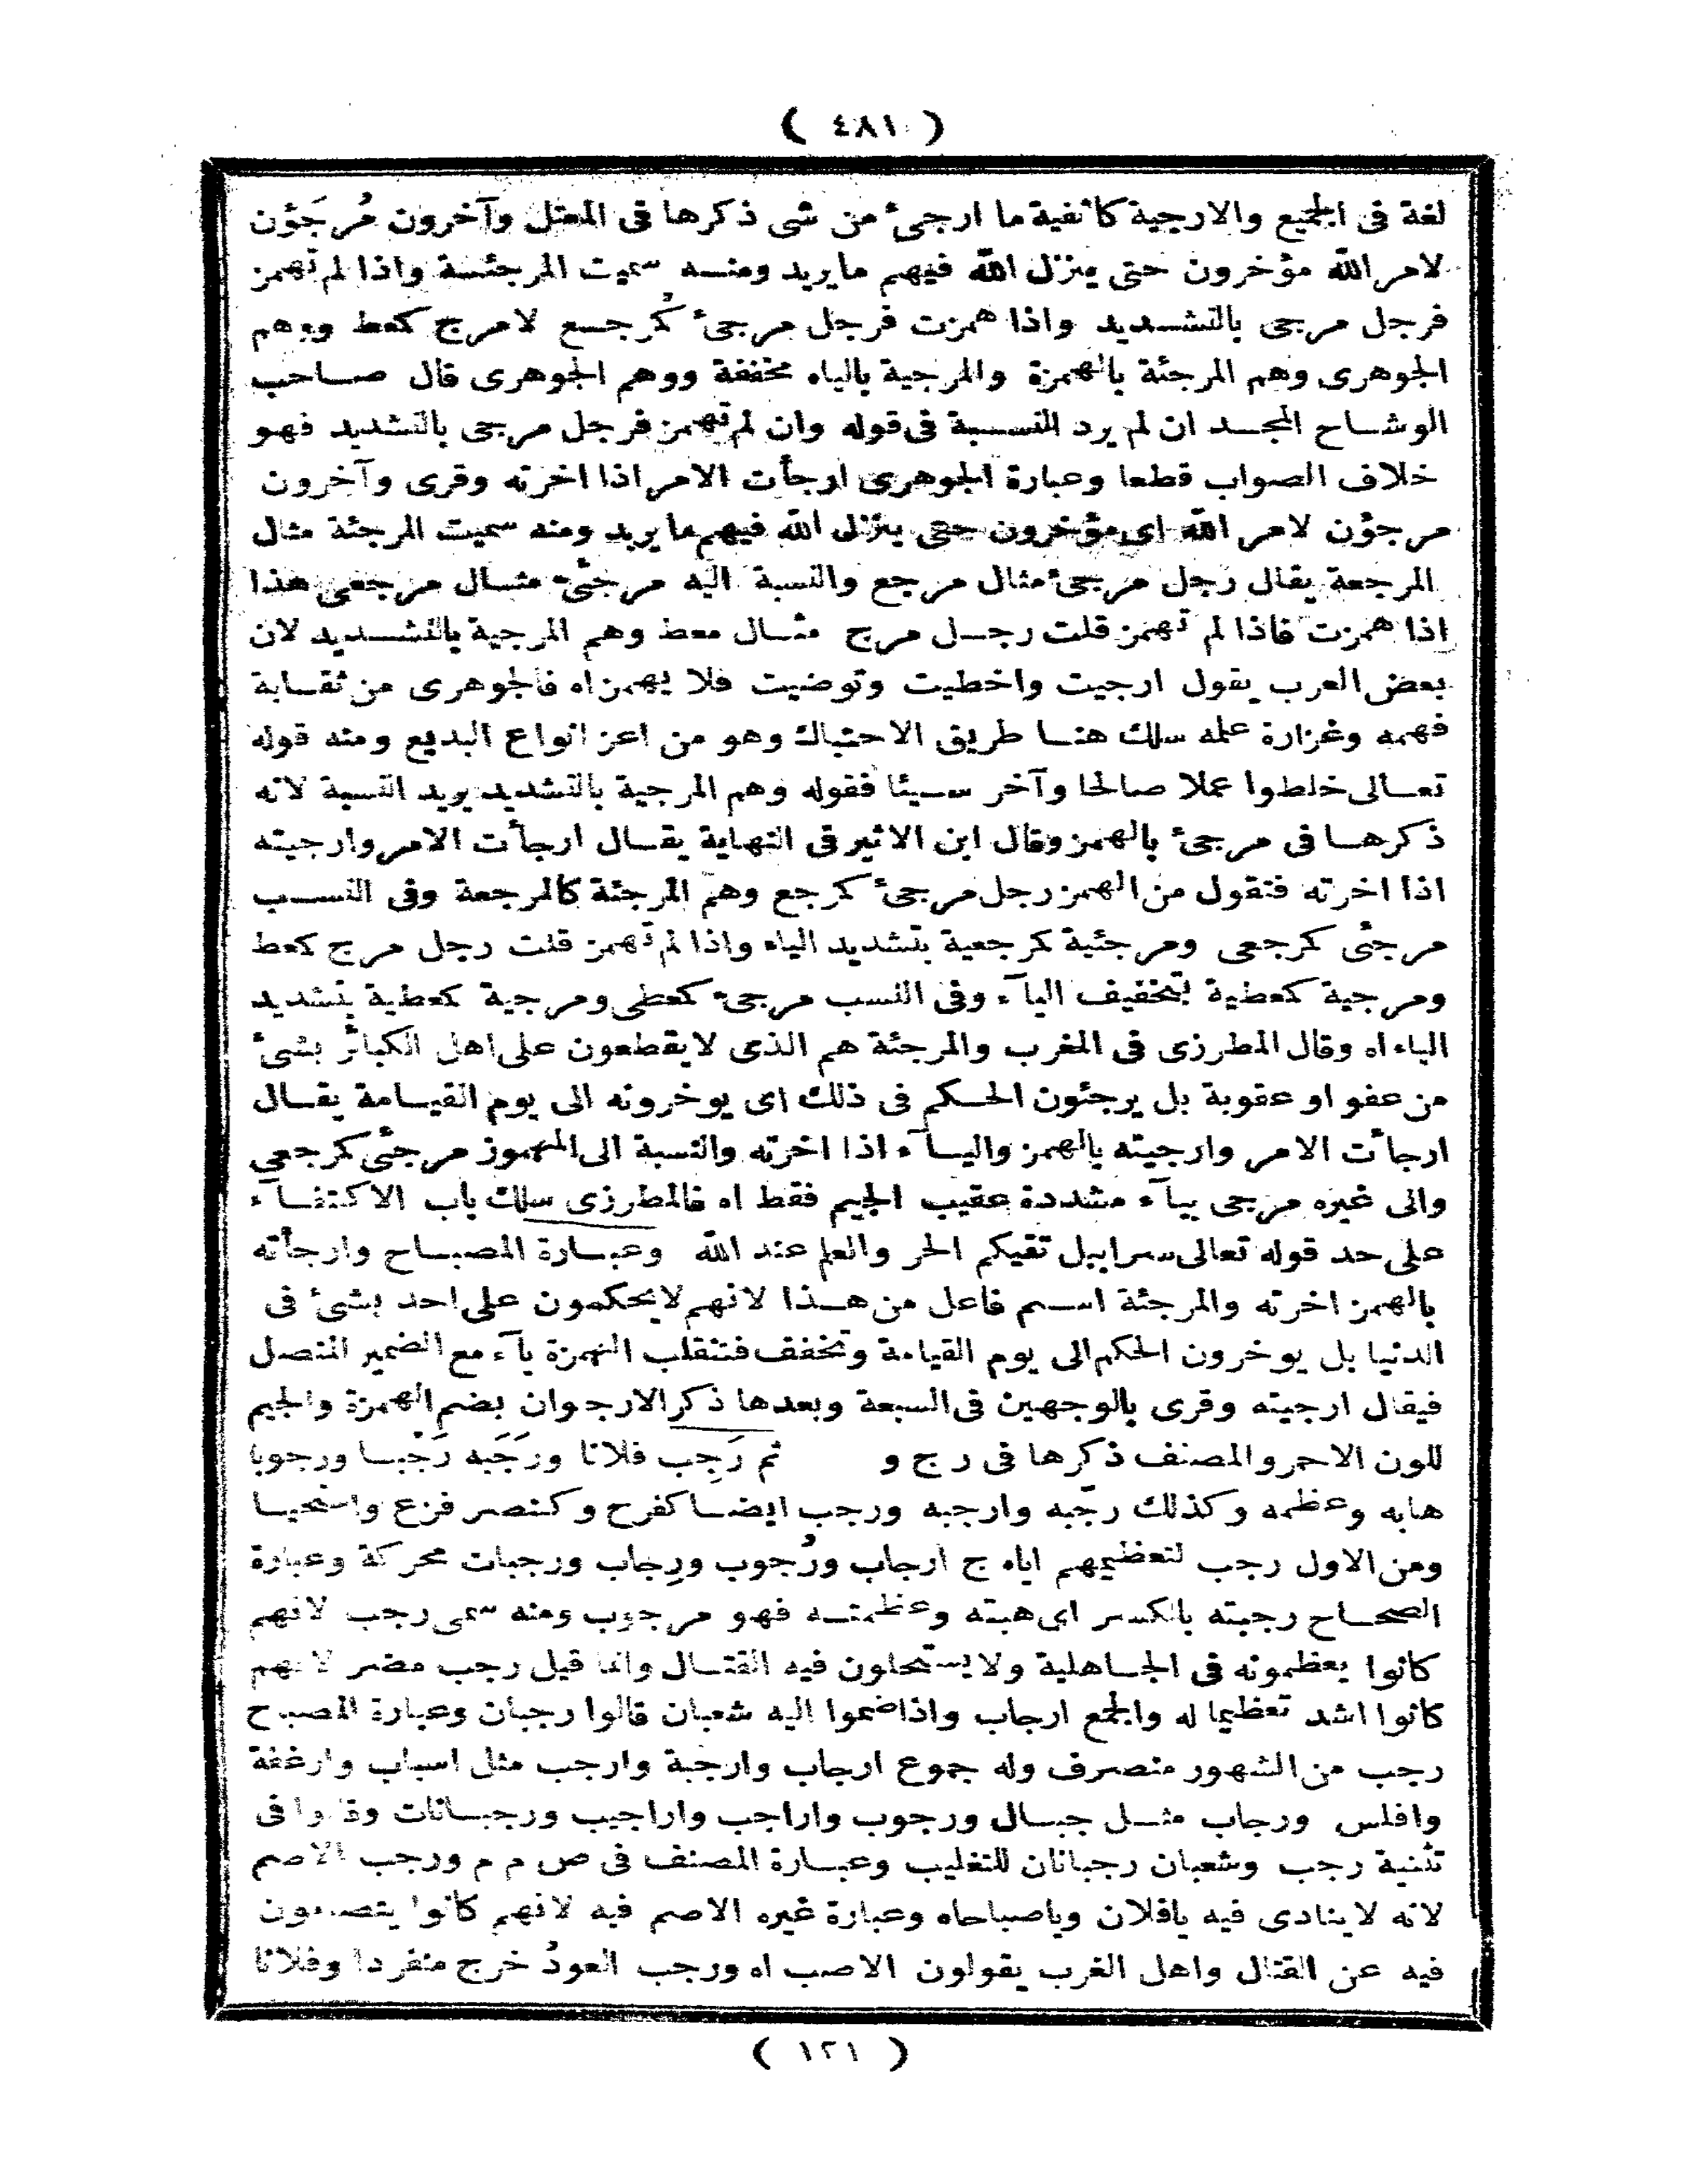 ( ٤٨١ )
لغة فى الجميع والارجية كاثفية ما ارجئ من شى ذكرها فى المعتل وآخرون مُرجَؤن
لامر الله مؤخرون حتى ينزل الله فيهم مايريد ومنه سميت المرجئة واذا لم تهمز
فرجل مرجى بالتشديد واذا همزت فرجل مرجئ كُرجع لامرج كمعط ووهم
الجوهرى وهم المرجئة بالهمزة والمرجية بالياء مخففة ووهم الجوهرى قال صاحب
الوشاح المجد ان لم يرد النسبة فى قوله وان لم تهمز فرجل مرجى بالتشديد فهو
خلاف الصواب قطعا وعبارة الجوهرى ارجأت الامر اذا اخرته وقرى وآخرون
مرجؤن لامر الله اى مؤخرون حتى ينزل الله فيهم ما يريد ومنه سميت المرجئة مثال
المرجعة يقال رجل مرجئ مثال مرجع والنسبة اليه مرجئى مثال مرجعى هذا
اذا همزت فاذا لم تهمز قلت رجل مرج مثال معط وهم المرجية بالتشديد لان
بعض العرب يقول ارجيت واخطيت وتوضيت فلا يهمز اه فالجوهرى من ثقابة
فهمه وغزارة علمه سلك هنا طريق الاحتباك وهو من اعز انواع البديع ومنه قوله
تعالى خلطوا عملا صالحا وآخر سيئا فقوله وهم المرجية بالتشديد يريد النسبة لانه
ذكرها فى مرجئ بالهمز وقال ابن الاثير فى النهاية يقال ارجأت الامر وارجيته
اذا اخرته فتقول من الهمز رجل مرجئ كمرجع وهم المرجئة كالمرجعة وفى النسب
مرجئى كمرجعى ومرجئية كمرجعية بتشديد الياء واذا لم تهمز قلت رجل مرج كمعط
ومرجية كمعطية بتخفيف اليآء وفى النسب مرجى كمعطى ومرجية كمعطية بتشديد
الياء اه وقال المطرزى فى المغرب والمرجئة هم الذى لايقطعون على اهل الكبائر بشئ
من عفو او عقوبة بل يرجئون الحكم فى ذلك اى يوخرونه الى يوم القيامة يقال
ارجأت الامر وارجيته بالهمز واليآء اذا اخرته والنسبة الى المهموز مرجئى كمرجعى
والى غيره مرجى بيآء مشددة عقيب الجيم فقط اه فالمطرزى سلك باب الاكتفآء
على حد قوله تعالى سرابيل تقيكم الحر والعلم عند الله وعبارة المصباح وارجأته
بالهمز اخرته والمرجئة اسم فاعل من هذا لانهم لايحكمون على احد بشئ فى
الدنيا بل يوخرون الحكم الى يوم القيامة وتخفف فتنقلب الهمزة يآء مع الضمير المتصل
فيقال ارجيته وقرى بالوجهين فى السبعة وبعدها ذكر الارجوان بضم الهمزة والجيم
للون الاحمر والمصنف ذكرها فى ر ج و ثم رَجِب فلانا ورَجَبه رَجْبا ورجوبا
هابه وعظمه وكذلك رجّبه وارجبه ورجب ايضا كفرح وكنصر فزع واستحيا
ومن الاول رجب لتعظيمهم اياه ج ارجاب ورُجوب ورِجاب ورجبات محركة وعبارة
الصحاح رجبته بالكسر اى هبته وعظمته فهو مرجوب ومنه سمى رجب لانهم
كانوا يعظمونه فى الجاهلية ولايستحلون فيه القتال وانما قيل رجب مضر لانهم
كانوا اشد تعظيما له والجمع ارجاب واذا ضموا اليه شعبان قالوا رجبان وعبارة المصباح
رجب من الشهور منصرف وله جموع ارجاب وارجبة وارجب مثل اسباب وارغفة
وافلس ورجاب مثل جبال ورجوب واراجب واراجيب ورجبانات وقالوا فى
تثنية رجب وشعبان رجبانان للتغليب وعبارة المصنف فى ص م م ورجب الاصم
لانه لاينادى فيه يافلان وياصباحاه وعبارة غيره الاصم فيه لانهم كانوا يتصاممون
فيه عن القتال واهل الغرب يقولون الاصب اه ورجب العودُ خرج منفردا وفلانا
( ١٢١ )